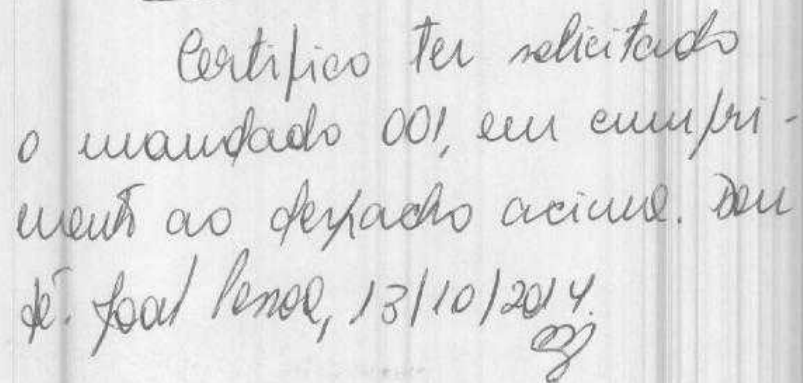 Certifico ter solicitado
o mandado 001, em cumpri-
mento ao despacho acima. Dou
fé. João Pessoa, 13/10/2014.